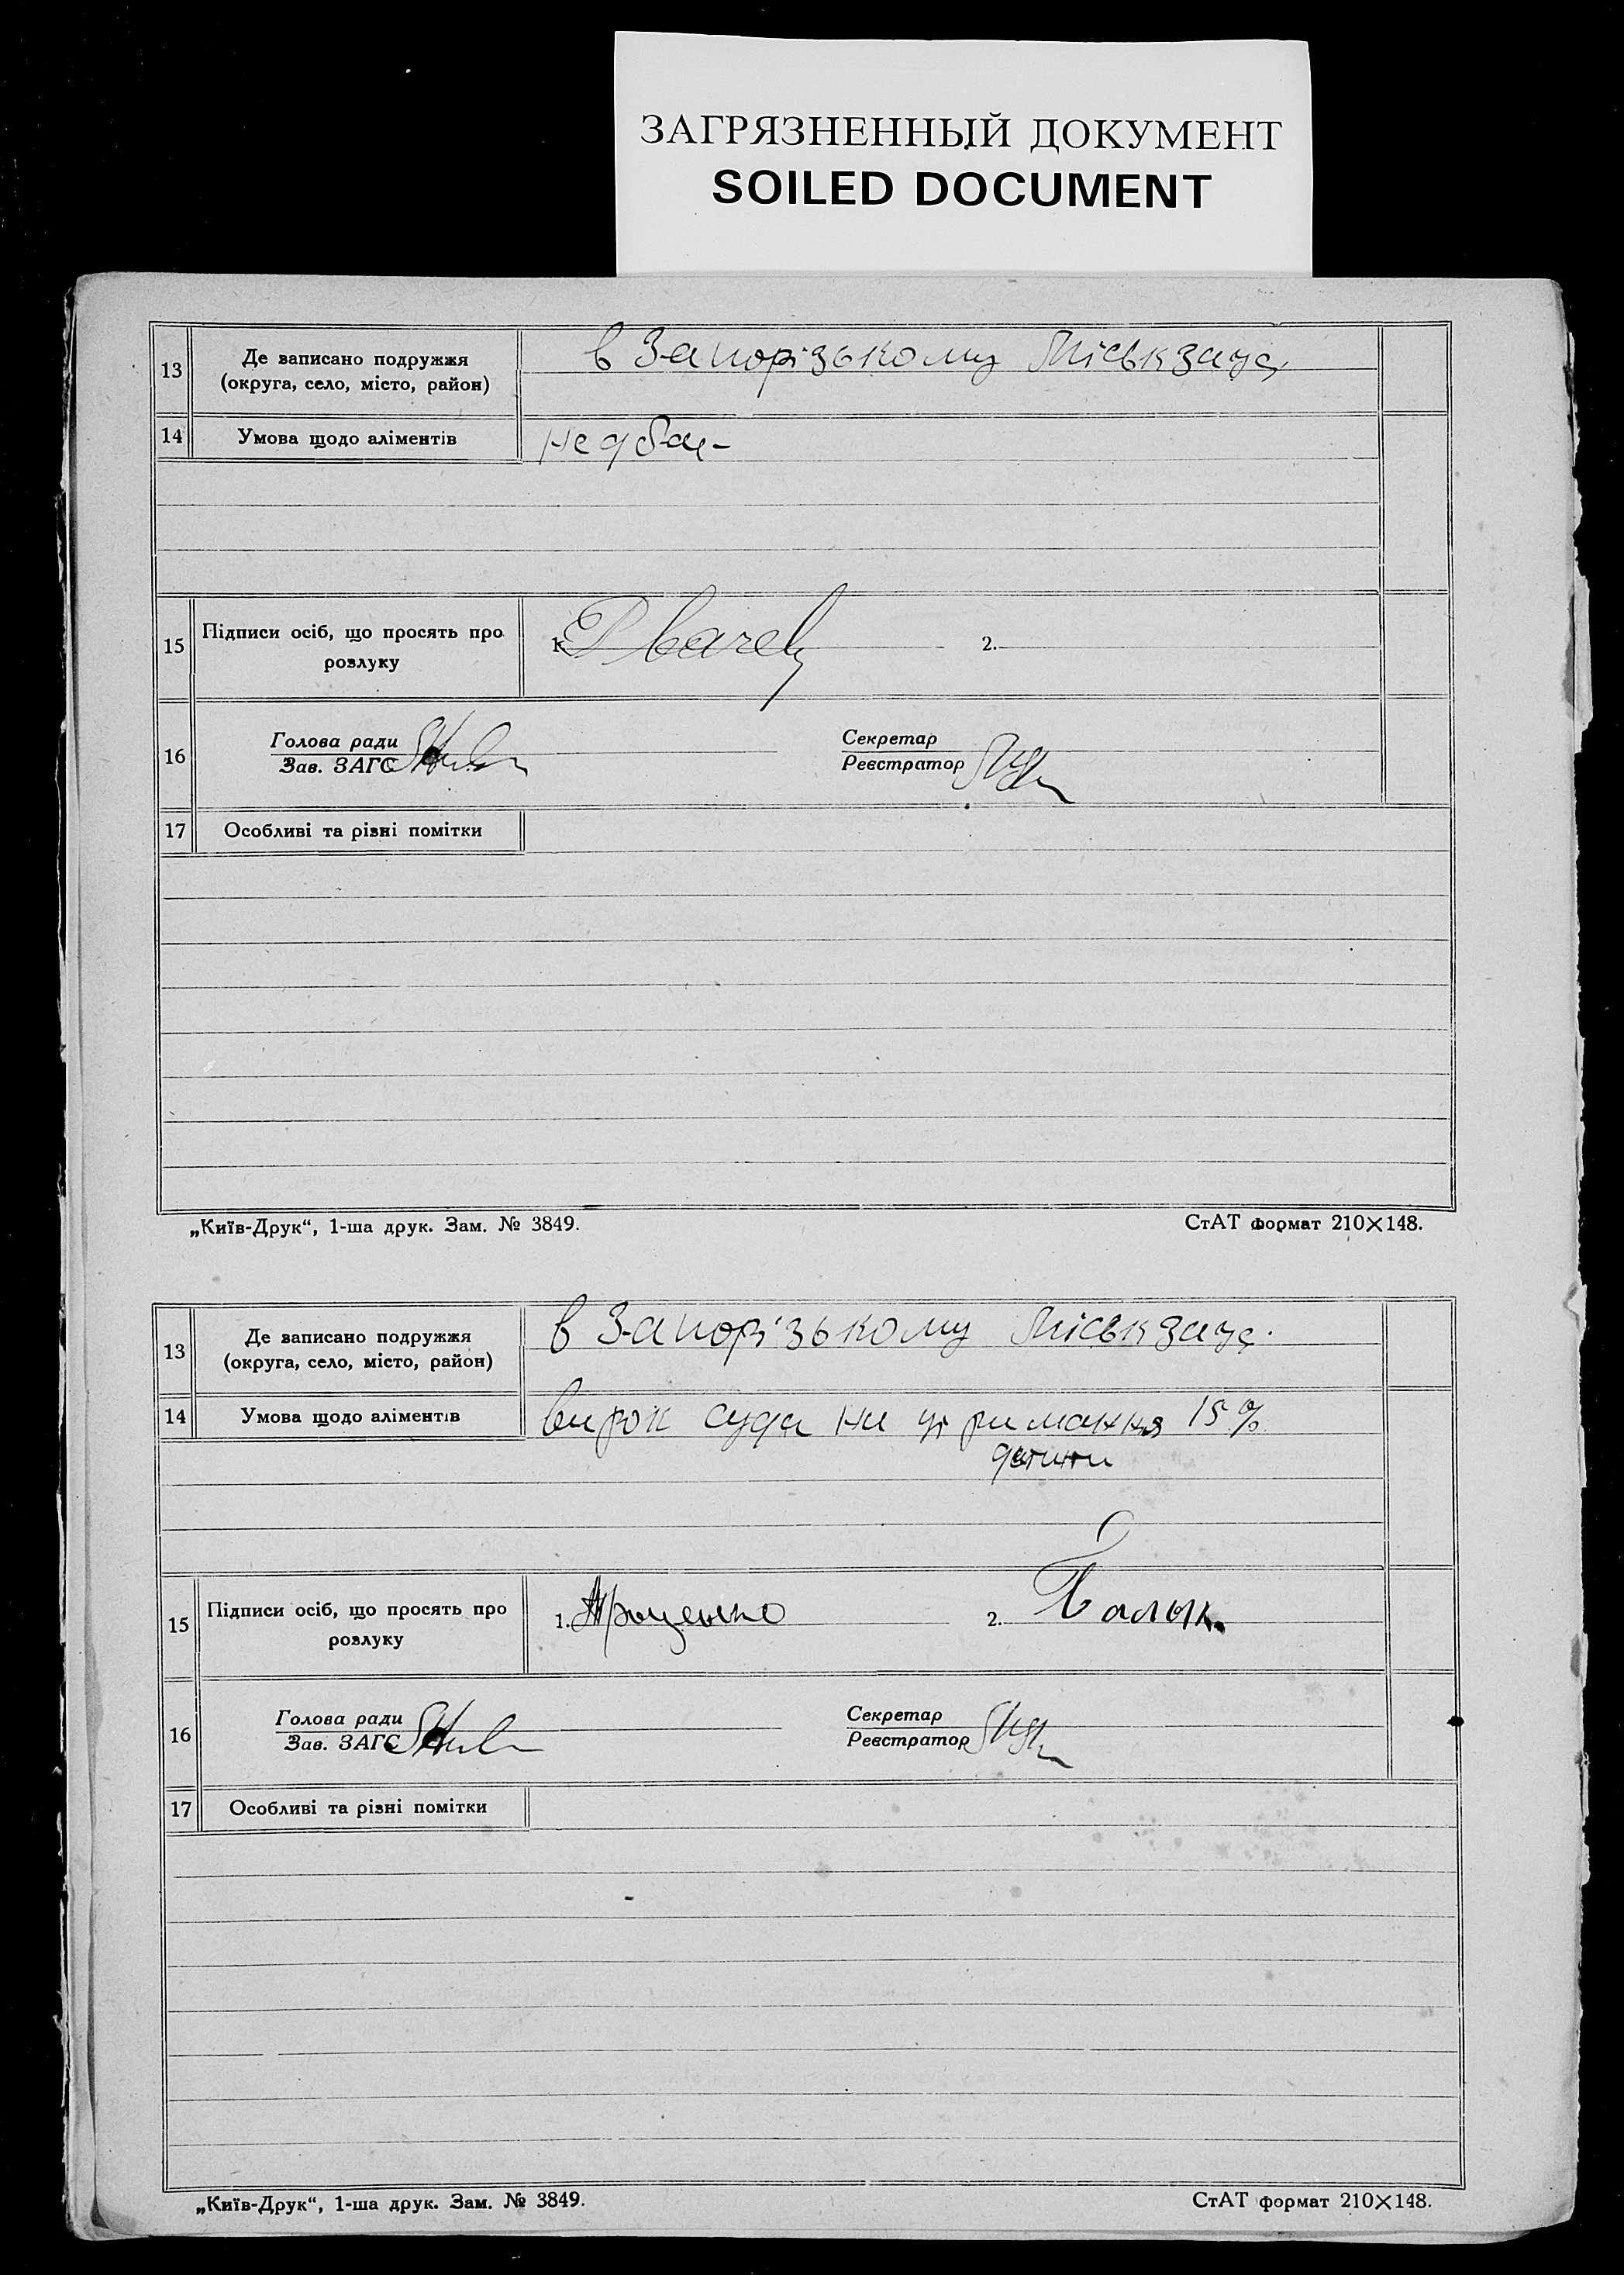 ЗАГРЯЗНЕННЫЙ ДОКУМЕНТ
SOILED DOCUMENT
13
Де записано подружжя
(округа, село, місто, район)
в Запорізькому Міськзагс
14
Умова щодо аліментів
15
Підписи осіб, що просять про
розлуку
1.
2.
16
Голова ради
Зав. ЗАГС
Секретар
Реєстратор
17
Особливі та різні помітки
„Київ-Друк“, 1-ша друк. Зам. № 3849.
СтАТ формат 210×148.
13
Де записано подружжя
(округа, село, місто, район)
в Запорізькому Міськзагс.
14
Умова щодо аліментів
вирок суда на утримання 15%
дитини
15
Підписи осіб, що просять про
розлуку
1. Проценко
2.
16
Голова ради
Зав. ЗАГС
Секретар
Реєстратор
17
Особливі та різні помітки
„Київ-Друк“, 1-ша друк. Зам. № 3849.
СтАТ формат 210×148.